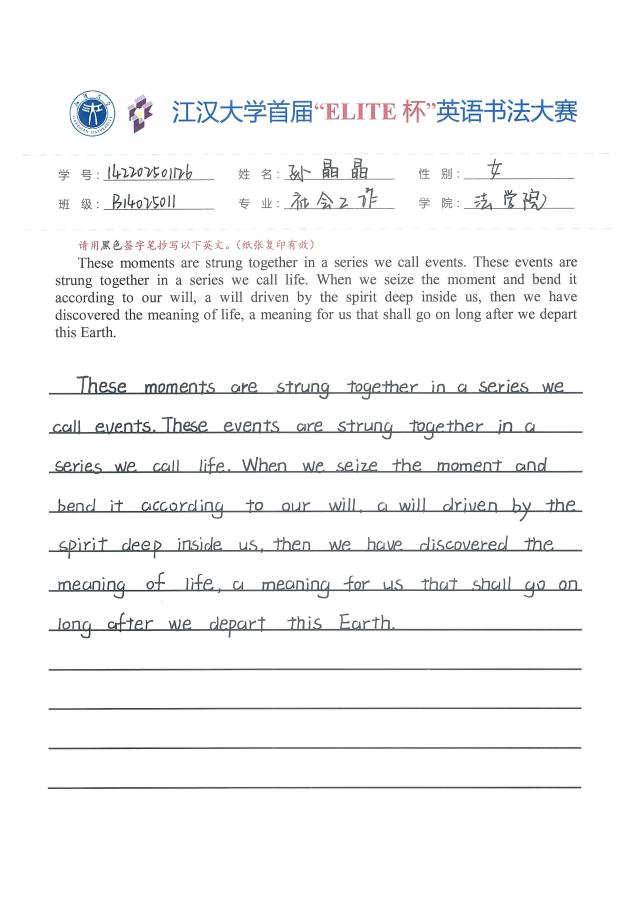 江汉大学首届“ELITE 杯”英语书法大赛
学 号: 142202501126 姓 名: 孙晶晶 性 别: 女
班 级: B14025011 专 业: 社会工作 学 院: 法学院
请用黑色签字笔抄写以下英文。(纸张复印有效)
These moments are strung together in a series we call events. These events are
strung together in a series we call life. When we seize the moment and bend it
according to our will, a will driven by the spirit deep inside us, then we have
discovered the meaning of life, a meaning for us that shall go on long after we depart
this Earth.
These moments are strung together in a series we
call events. These events are strung together in a
series we call life. When we seize the moment and
bend it according to our will, a will driven by the
spirit deep inside us, then we have discovered the
meaning of life, a meaning for us that shall go on
long after we depart this Earth.